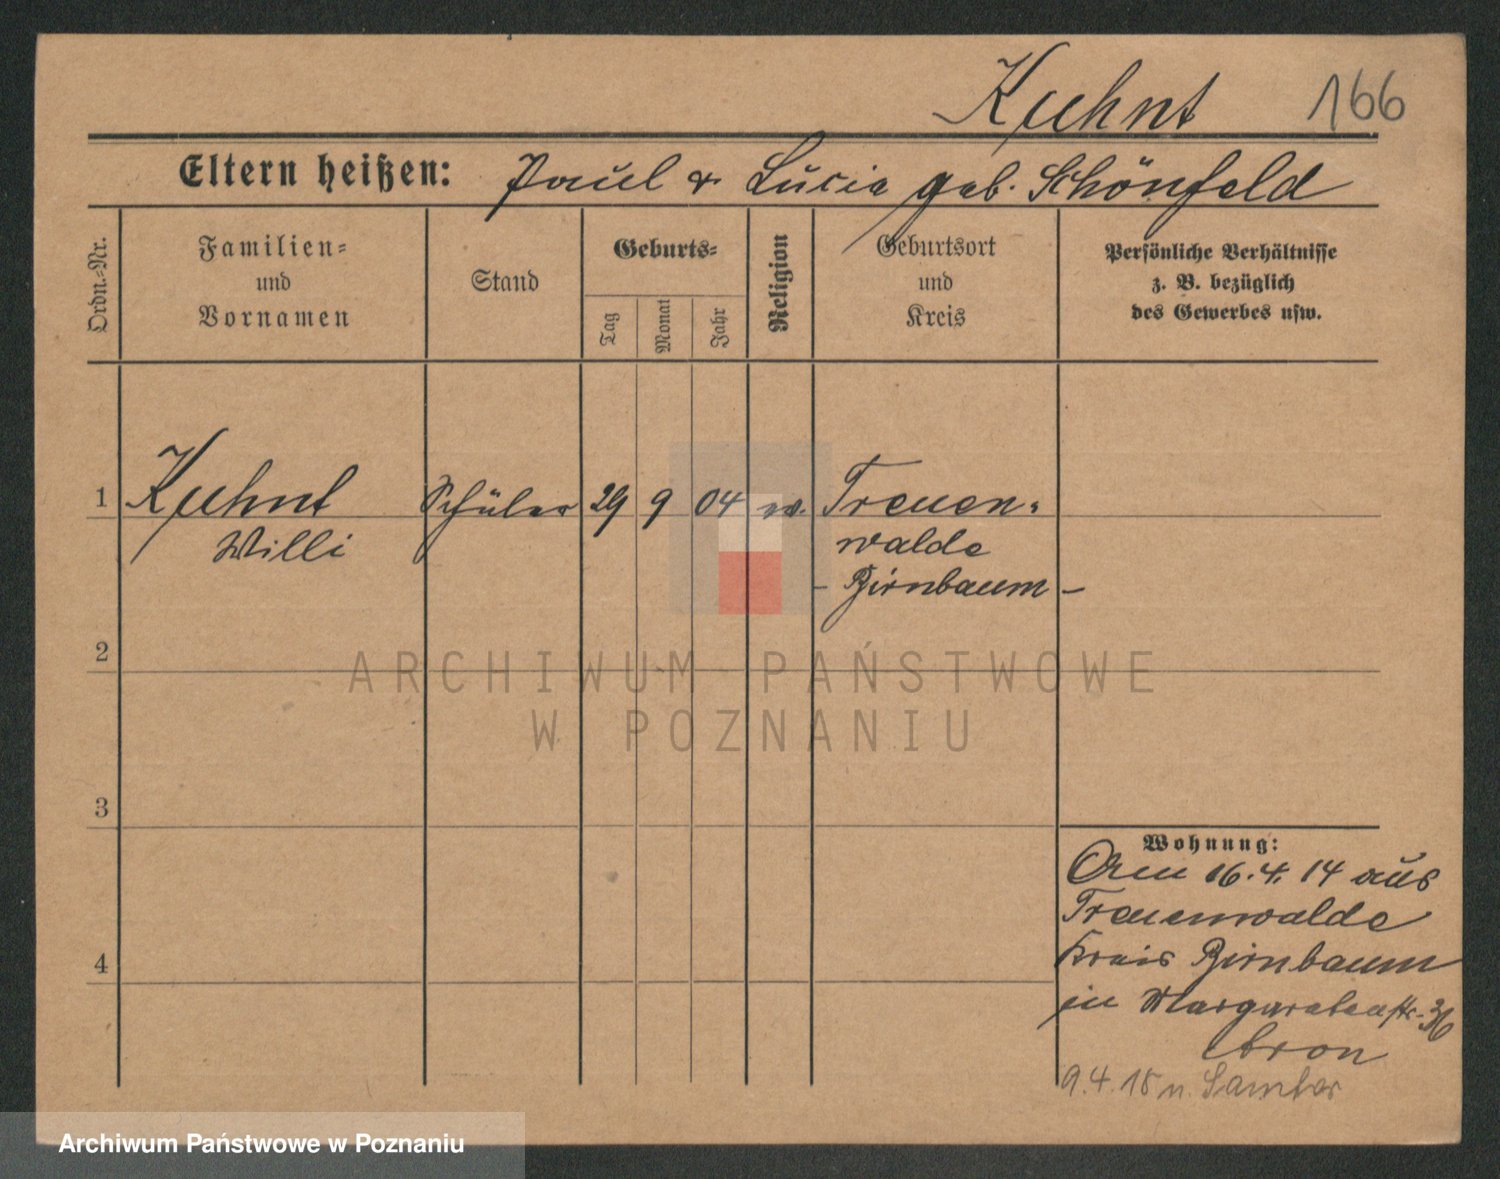 Kuhnt 166
Eltern heißen: Paul & Lucia geb. Schönfeld
Ordn.-Nr.
Familien-
und
Vornamen
Stand
Geburts-
Tag
Monat
Jahr
Religion
Geburtsort
und
Kreis
Persönliche Verhältnisse
z. B. bezüglich
des Gewerbes usw.
1 Kuhnt Schüler 29 9 04 ev. Treuen-
Willi walde
- Birnbaum -
2
3
4
ARCHIWUM PAŃSTWOWE
W POZNANIU
Wohnung:
Am 16.4.14 aus
Treuenwalde
Kreis Birnbaum
in Margaretenstr. 36
9.4.15 n. Samter
Archiwum Państwowe w Poznaniu